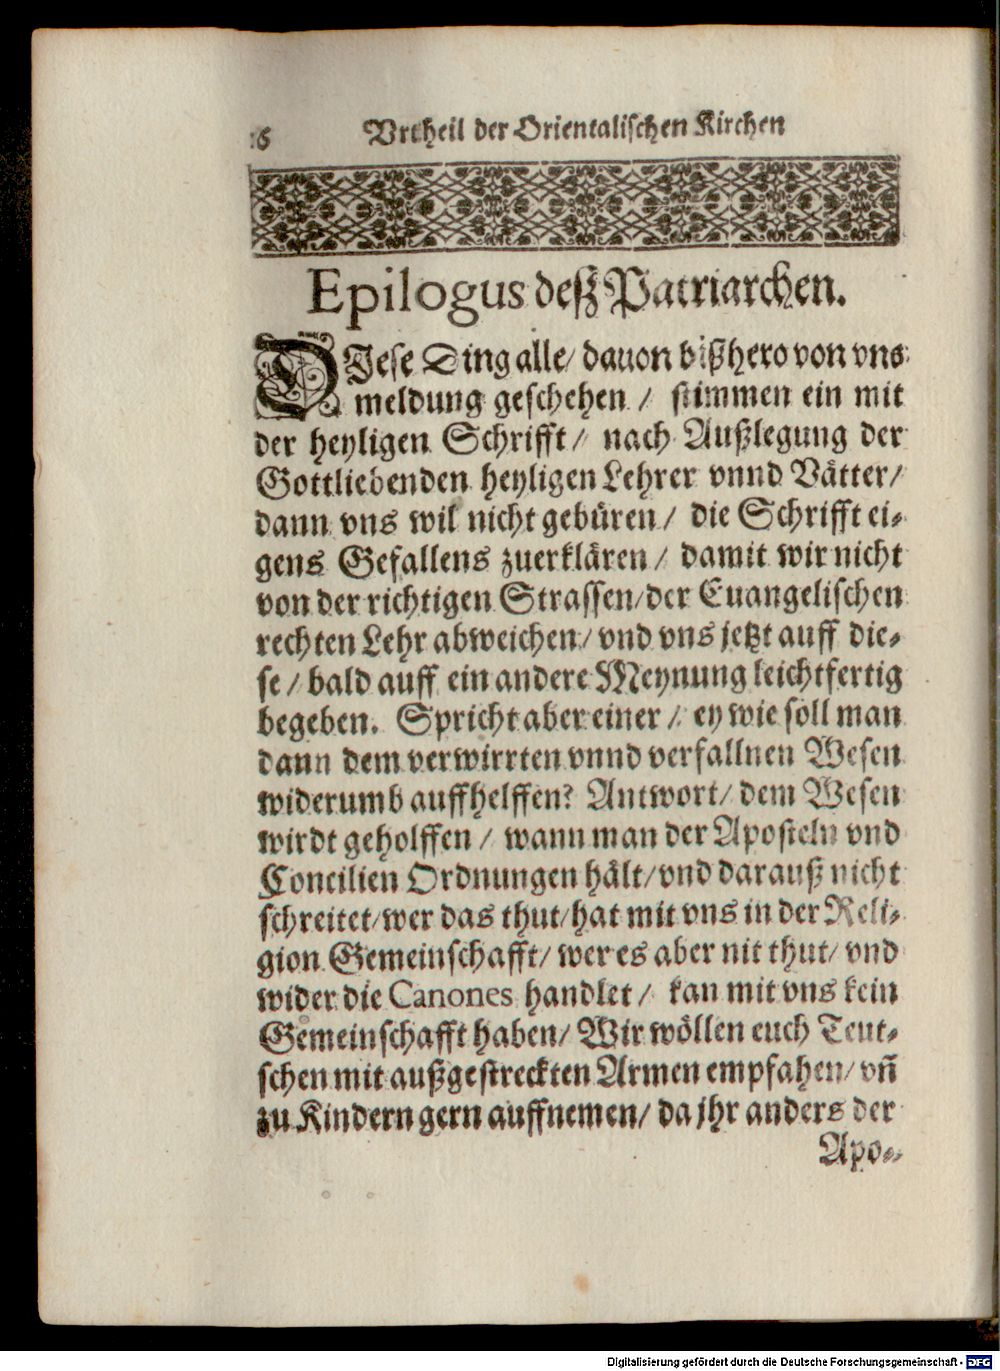 6 Vrtheil der Orientalischen Kirchen
Epilogus deß Patriarchen.
DIese Ding alle/ dauon bißhero von vns
meldung geschehen / stimmen ein mit
der heyligen Schrifft / nach Außlegung der
Gottliebenden heyligen Lehrer vnnd Vätter/
dann vns wil nicht gebüren / die Schrifft ei-
gens Gefallens zuerklären / damit wir nicht
von der richtigen Strassen/ der Euangelischen
rechten Lehr abweichen/ vnd vns jetzt auff die-
se / bald auff ein andere Meynung leichtfertig
begeben. Spricht aber einer / ey wie soll man
dann dem verwirrten vnnd verfallnen Wesen
widerumb auffhelffen? Antwort/ dem Wesen
wirdt geholffen / wann man der Aposteln vnd
Concilien Ordnungen hält/ vnd darauß nicht
schreitet/ wer das thut/ hat mit vns in der Reli-
gion Gemeinschafft/ wer es aber nit thut/ vnd
wider die Canones handlet / kan mit vns kein
Gemeinschafft haben/ Wir wöllen euch Teut-
schen mit außgestreckten Armen empfahen/ vñ
zu Kindern gern auffnemen/ da jhr anders der
Apo-
Digitalisierung gefördert durch die Deutsche Forschungsgemeinschaft - DFG